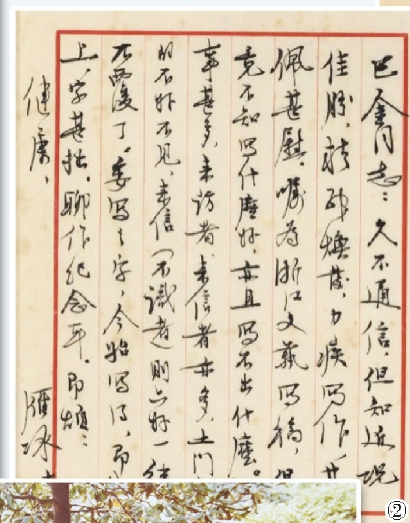 巴金同志：久不通信，但知近况
佳勝，精神焕发，力疾写作，甚
佩甚慰。嘱为浙江文藝写稿，但
竟不知写什麽好，亦且写不出什麽。
事甚多，来访者来信者亦多，上门
的不好不见，来信（不識者）则只好一律
不覆了。委写之字，今始写得，即
上，字甚拙，聊作纪念耳。即颂：
健康，
雁冰
②